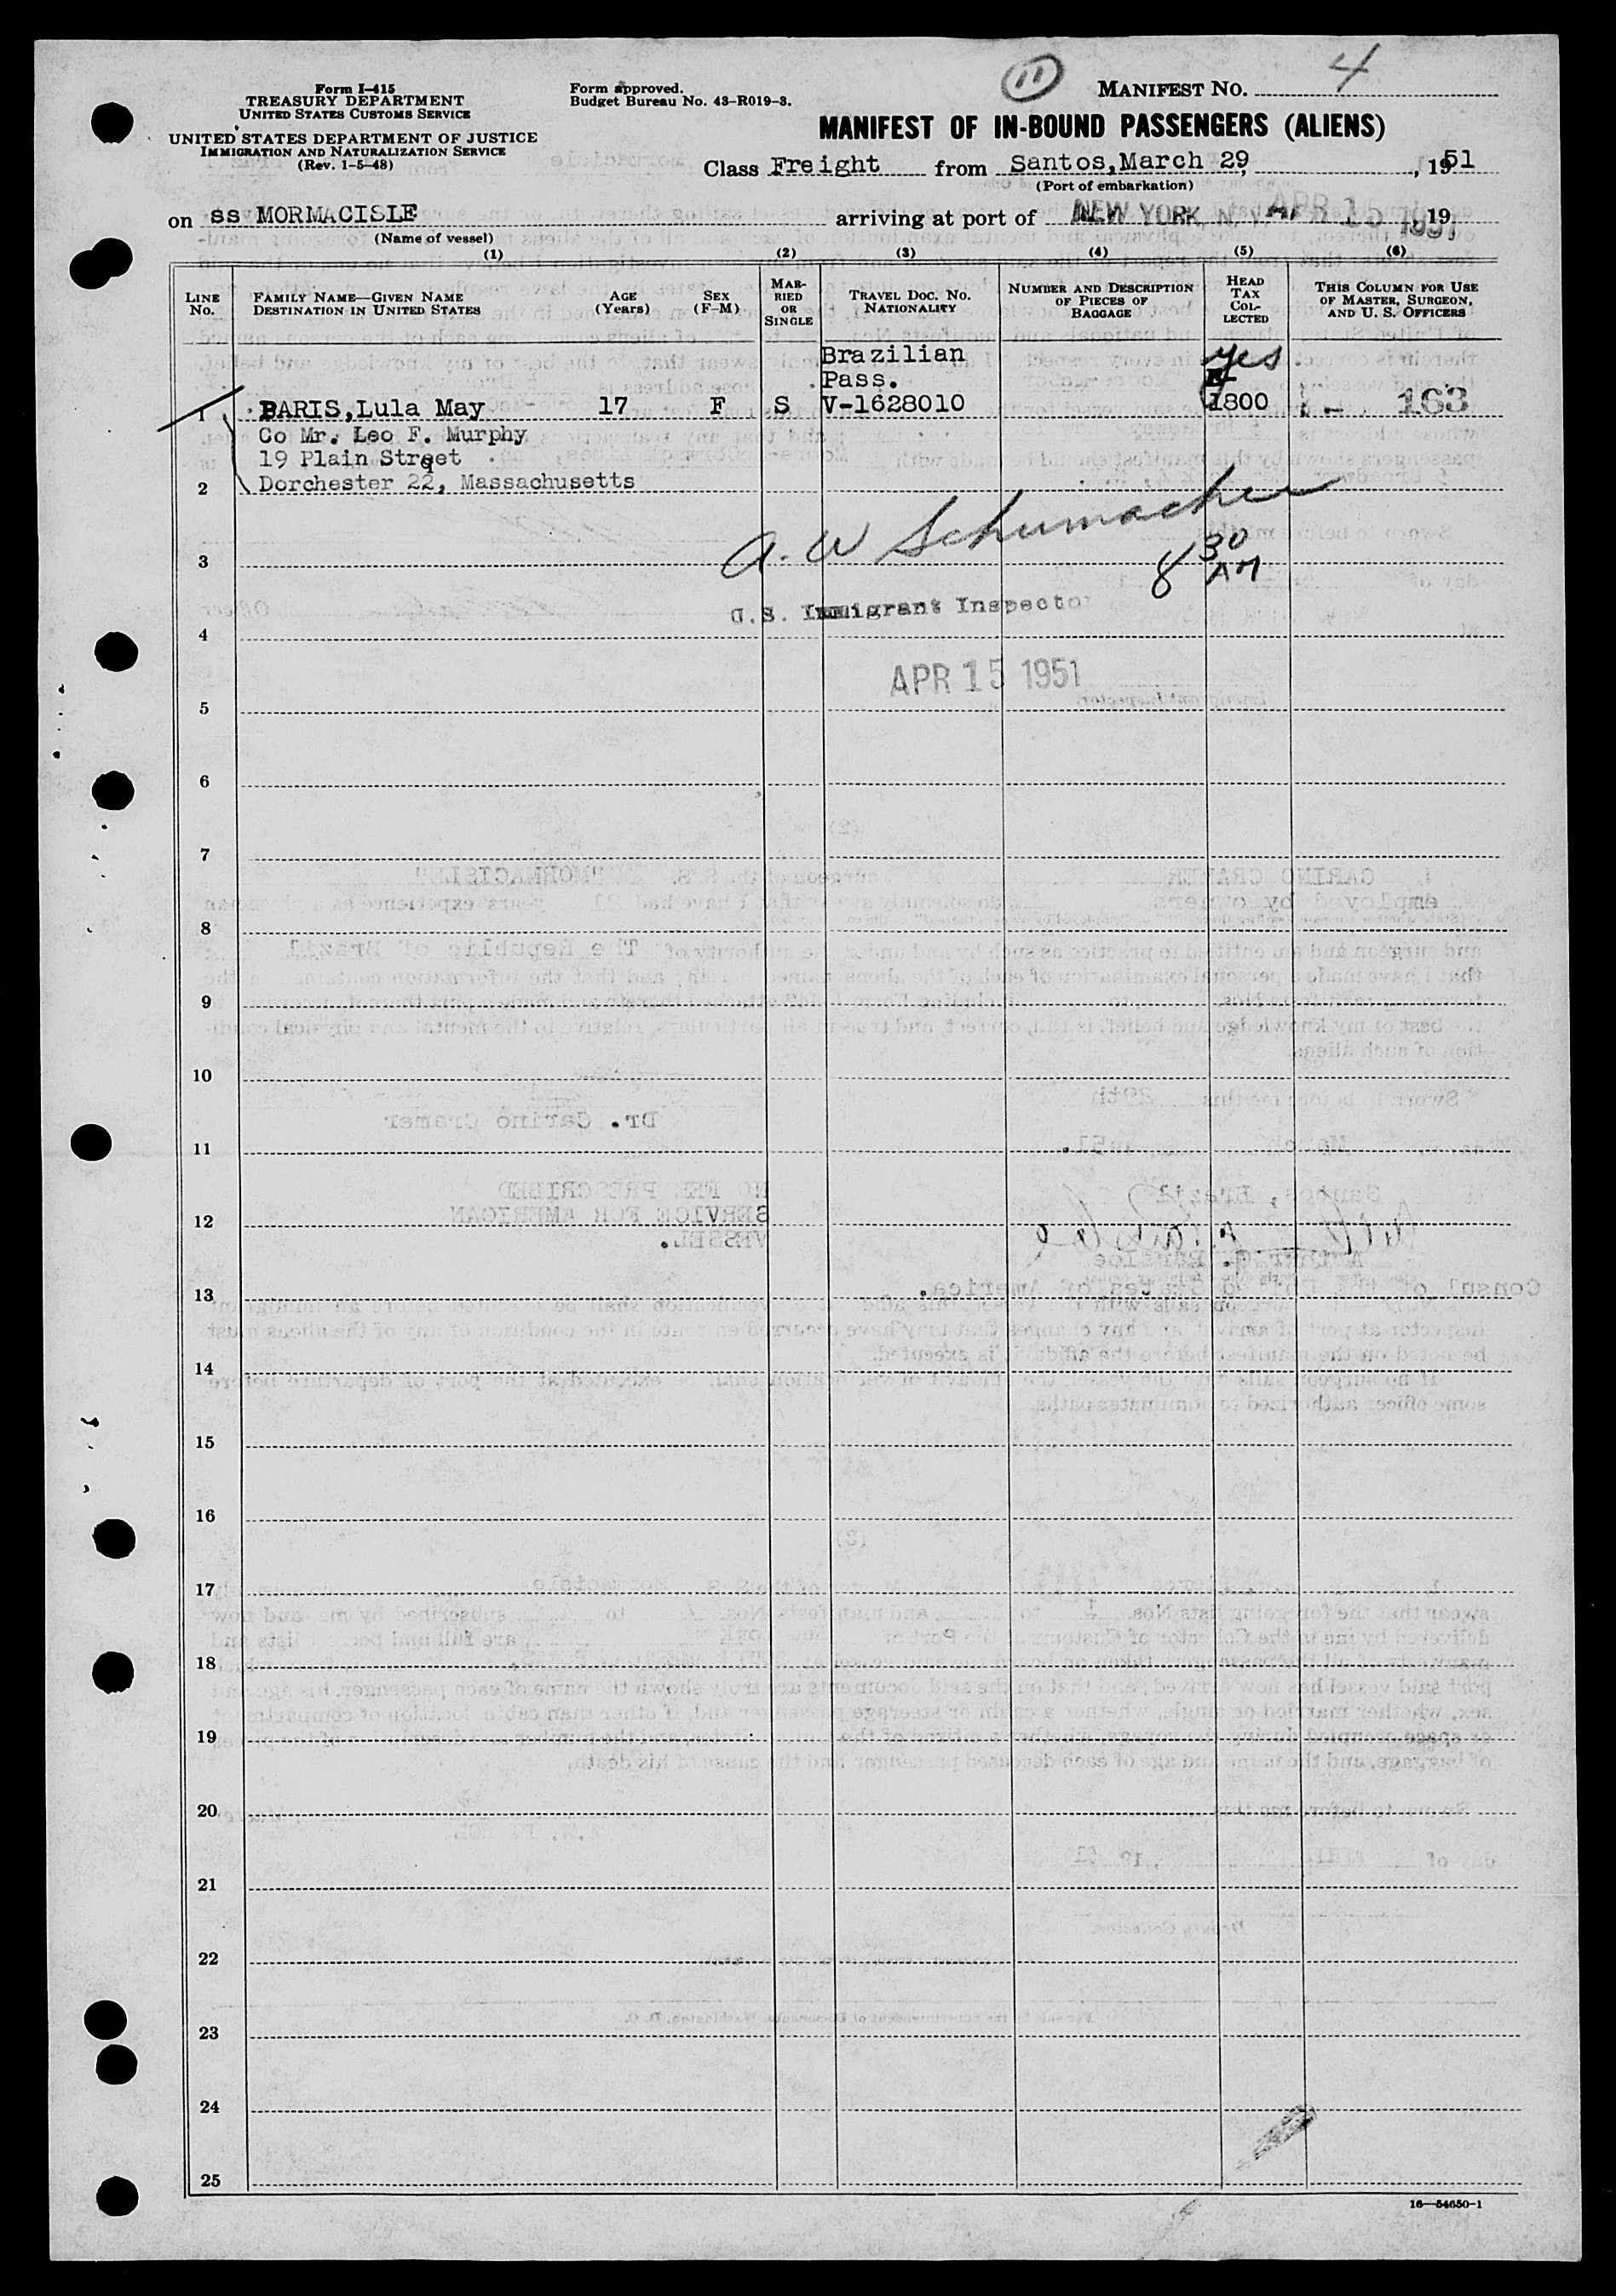 Form I-415
TREASURY DEPARTMENT
UNITED STATES CUSTOMS SERVICE
UNITED STATES DEPARTMENT OF JUSTICE
IMMIGRATION AND NATURALIZATION SERVICE
(Rev. 1-5-48)
Form approved.
Budget Bureau No. 43-R019-3.
11
MANIFEST NO. 4
MANIFEST OF IN-BOUND PASSENGERS (ALIENS)
Class Freight from Santos, March 29, , 1951
(Port of embarkation)
on ss MORMACISLE arriving at port of NEW YORK, N. Y. APR 15 1951, 19
(Name of vessel)
(1) (2) (3) (4) (5) (6)
LINE No.
FAMILY NAME—GIVEN NAME
DESTINATION IN UNITED STATES
AGE (Years)
SEX (F-M)
MARRIED OR SINGLE
TRAVEL DOC. NO.
NATIONALITY
NUMBER AND DESCRIPTION OF PIECES OF BAGGAGE
HEAD TAX COLLECTED
THIS COLUMN FOR USE OF MASTER, SURGEON, AND U. S. OFFICERS
Brazilian yes
Pass.
1 PARIS, Lula May 17 F S V-1628010 1800 163
Co Mr. Leo F. Murphy
19 Plain Street
2 Dorchester 22, Massachusetts
A. W Schumacher
3 8 30 AM
U.S. Immigrant Inspector
4
APR 15 1951
5
6
7
8
9
10
11
12
13
14
15
16
17
18
19
20
21
22
23
24
25
16—54650-1